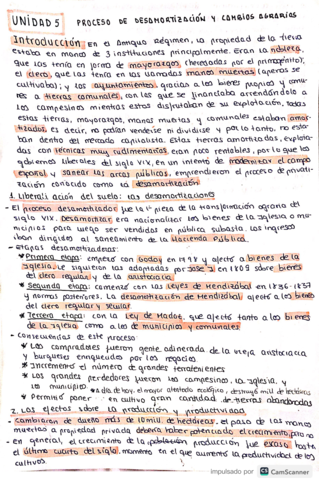 UNIDAD 5 PROCESO DE DESAMORTIZACIÓN Y CAMBIOS AGRARIOS
Introducción: En el Antiguo Régimen, la propiedad de la tierra
estaba en mano de 3 instituciones principalmente. Eran la nobleza,
que las tenía en forma de mayorazgos (heredadas por el primogénito);
el clero, que las tenía en las llamadas manos muertas (apenas se
cultivaba); y los ayuntamientos, gracias a los bienes propios y comu-
nes o tierras comunales, con las que se financiaba arrendándolo a
los campesinos mientras estos disfrutaban de su explotación, todas
estas tierras, mayorazgos, manos muertas y comunales estaban amor-
tizados, es decir, no podían venderse ni dividirse y por lo tanto, no esta-
ban dentro del mercado capitalista. Estas tierras amortizadas, explota-
das con técnicas muy rudimentarias, eran poco rentables, por lo que los
gobiernos liberales del siglo XIX, en un intento de modernizar el campo
español y sanear las arcas públicas, emprendieron el proceso de privati-
zación conocido como la desamortización
1. Liberalización del suelo: las desamortizaciones
- El proceso desamortizador fue la 1ª pieza de la transformación agraria del
siglo XIX. Desamortizar era nacionalizar los bienes de la Iglesia o mu-
nicipios para luego ser vendidos en pública subasta. Los ingresos
iban dirigidos al saneamiento de la Hacienda Pública.
- Etapas desamortizadoras:
Primera etapa: empezó con Godoy en 1798 y afectó a bienes de la
Iglesia. Le siguieron las adoptadas por José I en 1809 sobre bienes
del clero regular y de la aristocracia
Segunda etapa: comenzó con las Leyes de Mendizábal en 1836-1837
y normas posteriores. La desamortización de Mendizábal afectó a los bienes
del clero regular y secular
Tercera etapa: con la Ley de Madoz, que afectó tanto a los bienes
de la Iglesia como a los de municipios y comunales
- Consecuencias de este proceso
Los compradores fueron gente adinerada de la vieja aristocracia
y burgueses enriquecidos por los negocios
Incrementó el número de grandes terratenientes
Los grandes perdedores fueron los campesinos, la Iglesia, y
los municipios
Permitió poner en cultivo gran cantidad de tierras abandonadas
2. Los efectos sobre la producción y productividad
- Cambiaron de dueño más de 10 mill de hectáreas. El paso de las manos
muertas a propiedad privada debería haber potenciado el crecimiento, pero no
- En general, el crecimiento de la población y producción fue escaso hasta
el último cuarto del siglo, momento en el que aumentó la productividad de los
cultivos.
impulsado por CS CamScanner